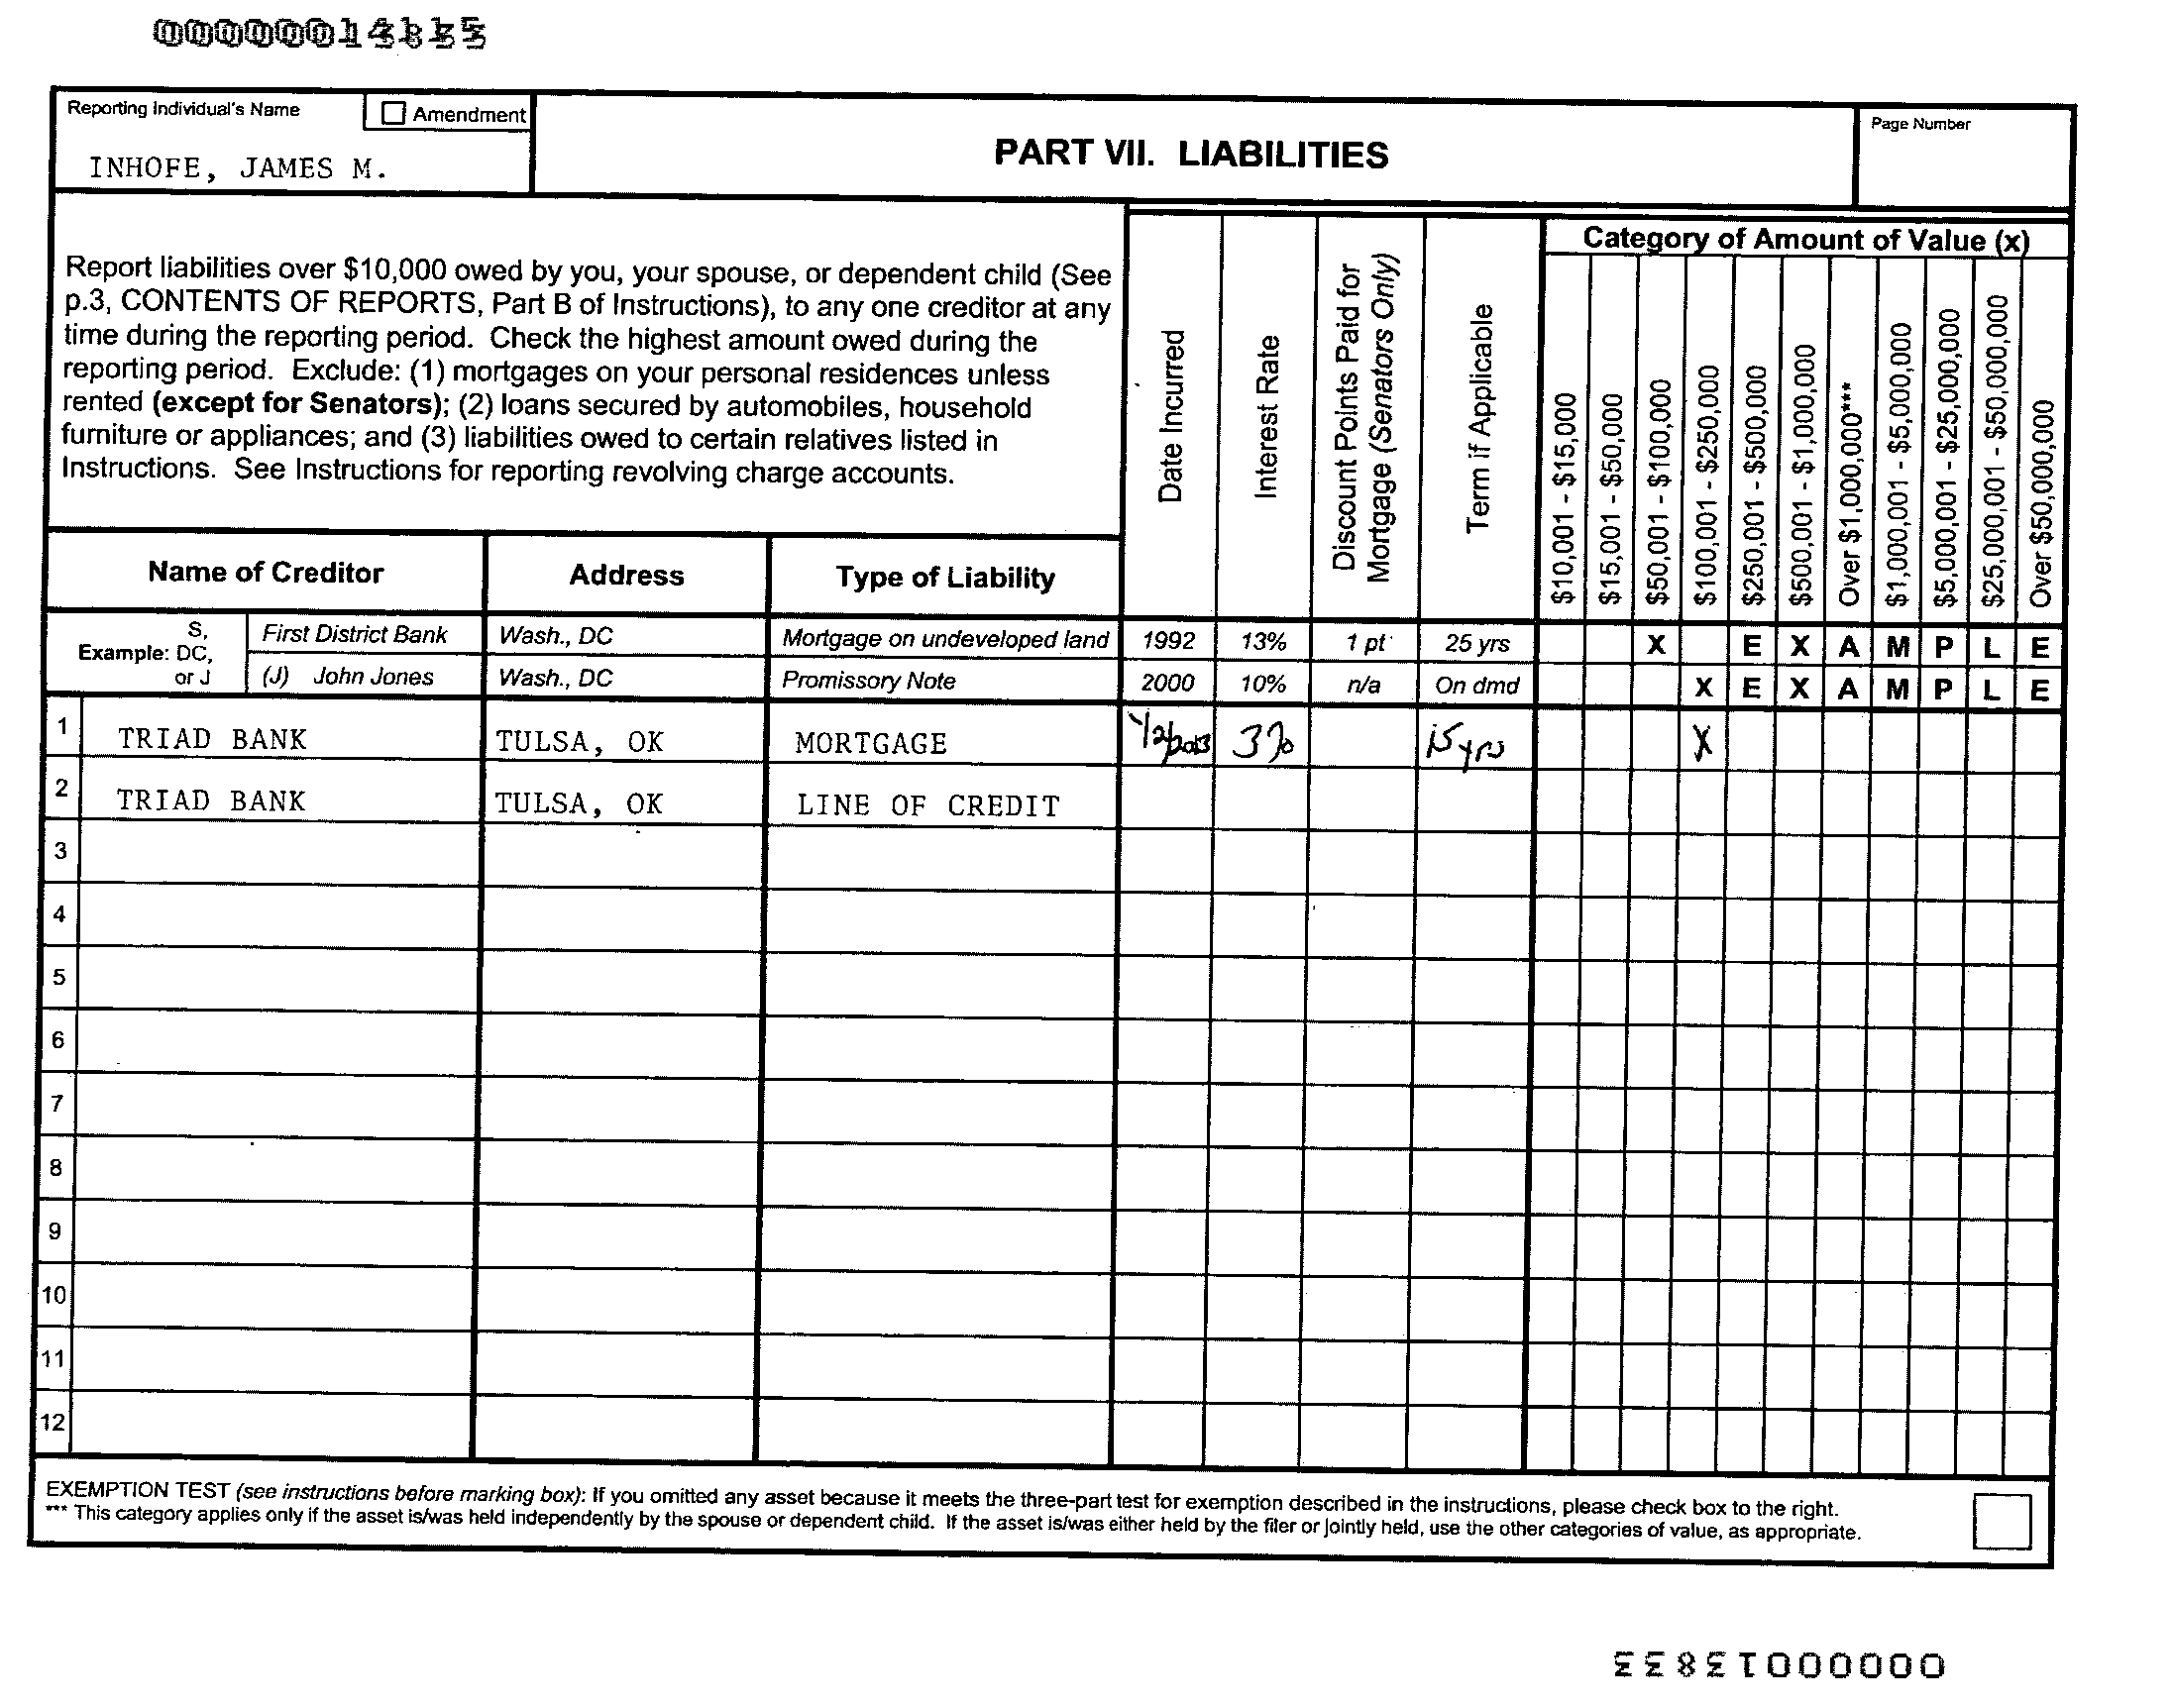 Reporting Individual's Name
Amendment
INHOFE, JAMES M.
PART VII. LIABILITIES
Page Number
Report liabilities over $10,000 owed by you, your spouse, or dependent child (See
p.3, CONTENTS OF REPORTS, Part B of Instructions), to any one creditor at any
time during the reporting period. Check the highest amount owed during the
reporting period. Exclude: (1) mortgages on your personal residences unless
rented (except for Senators); (2) loans secured by automobiles, household
furniture or appliances; and (3) liabilities owed to certain relatives listed in
Instructions. See Instructions for reporting revolving charge accounts.
Date Incurred
Interest Rate
Discount Points Paid for
Mortgage (Senators Only)
Term if Applicable
Category of Amount of Value (x)
$10,001 - $15,000
$15,001 - $50,000
$50,001 - $100,000
$100,001 - $250,000
$250,001 - $500,000
$500,001 - $1,000,000
Over $1,000,000***
$1,000,001 - $5,000,000
$5,000,001 - $25,000,000
$25,000,001 - $50,000,000
Over $50,000,000
Name of Creditor Address Type of Liability
Example: S, DC, or J
First District Bank Wash., DC Mortgage on undeveloped land 1992 13% 1 pt 25 yrs X E X A M P L E
(J) John Jones Wash., DC Promissory Note 2000 10% n/a On dmd X E X A M P L E
1 TRIAD BANK TULSA, OK MORTGAGE 3% 15 yrs X
2 TRIAD BANK TULSA, OK LINE OF CREDIT
3
4
5
6
7
8
9
10
11
12
EXEMPTION TEST (see instructions before marking box): If you omitted any asset because it meets the three-part test for exemption described in the instructions, please check box to the right.
*** This category applies only if the asset is/was held independently by the spouse or dependent child. If the asset is/was either held by the filer or jointly held, use the other categories of value, as appropriate.
000000013833